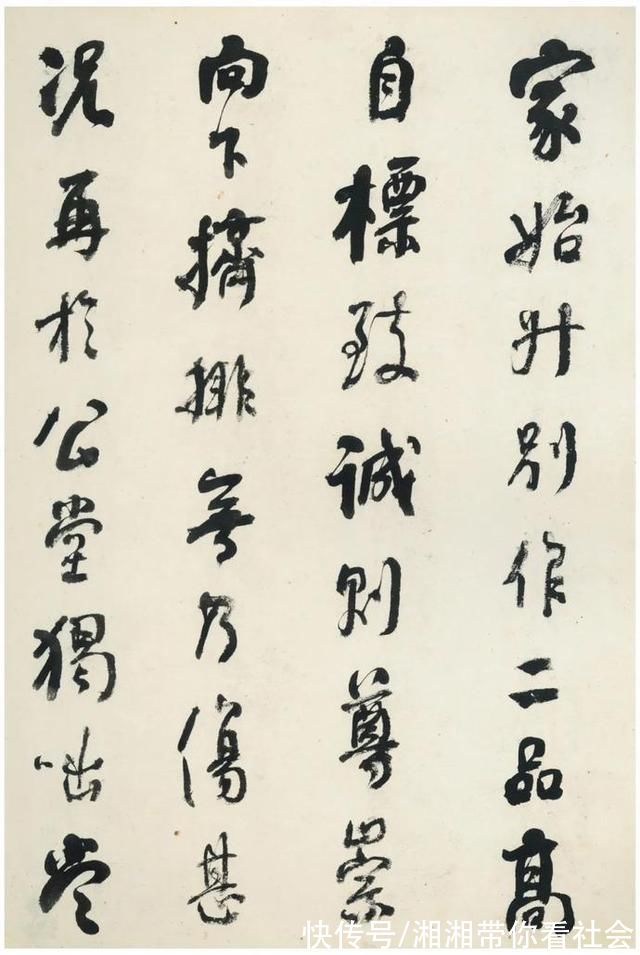 家始升別作二品高
自標致誠則尊崇
向下擠排無乃傷甚
況再於公堂獨咄常
快传号/湘湘带你看社会